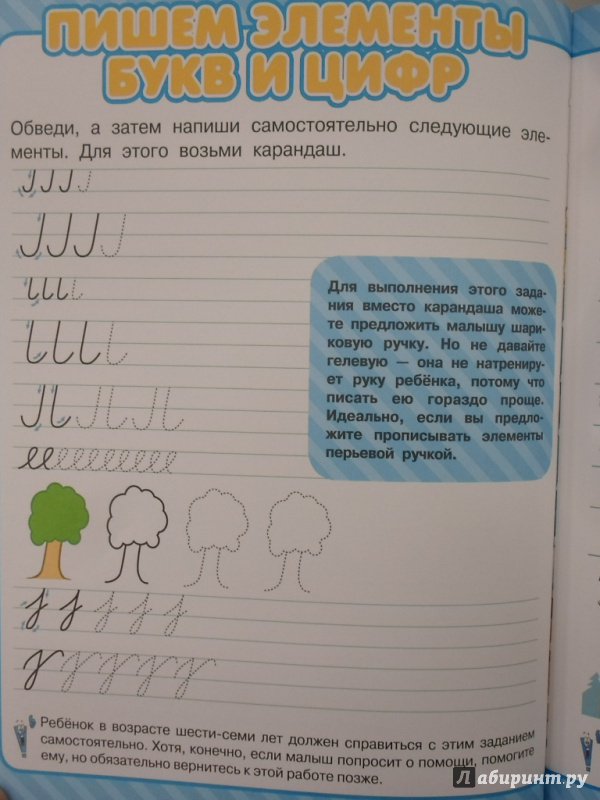 ПИШЕМ ЭЛЕМЕНТЫ
БУКВ И ЦИФР
Обведи, а затем напиши самостоятельно следующие эле-
менты. Для этого возьми карандаш.
Для выполнения этого зада-
ния вместо карандаша може-
те предложить малышу шари-
ковую ручку. Но не давайте
гелевую — она не натрениру-
ет руку ребёнка, потому что
писать ею гораздо проще.
Идеально, если вы предло-
жите прописывать элементы
перьевой ручкой.
Ребёнок в возрасте шести-семи лет должен справиться с этим заданием
самостоятельно. Хотя, конечно, если малыш попросит о помощи, помогите
ему, но обязательно вернитесь к этой работе позже.
Лабиринт.ру